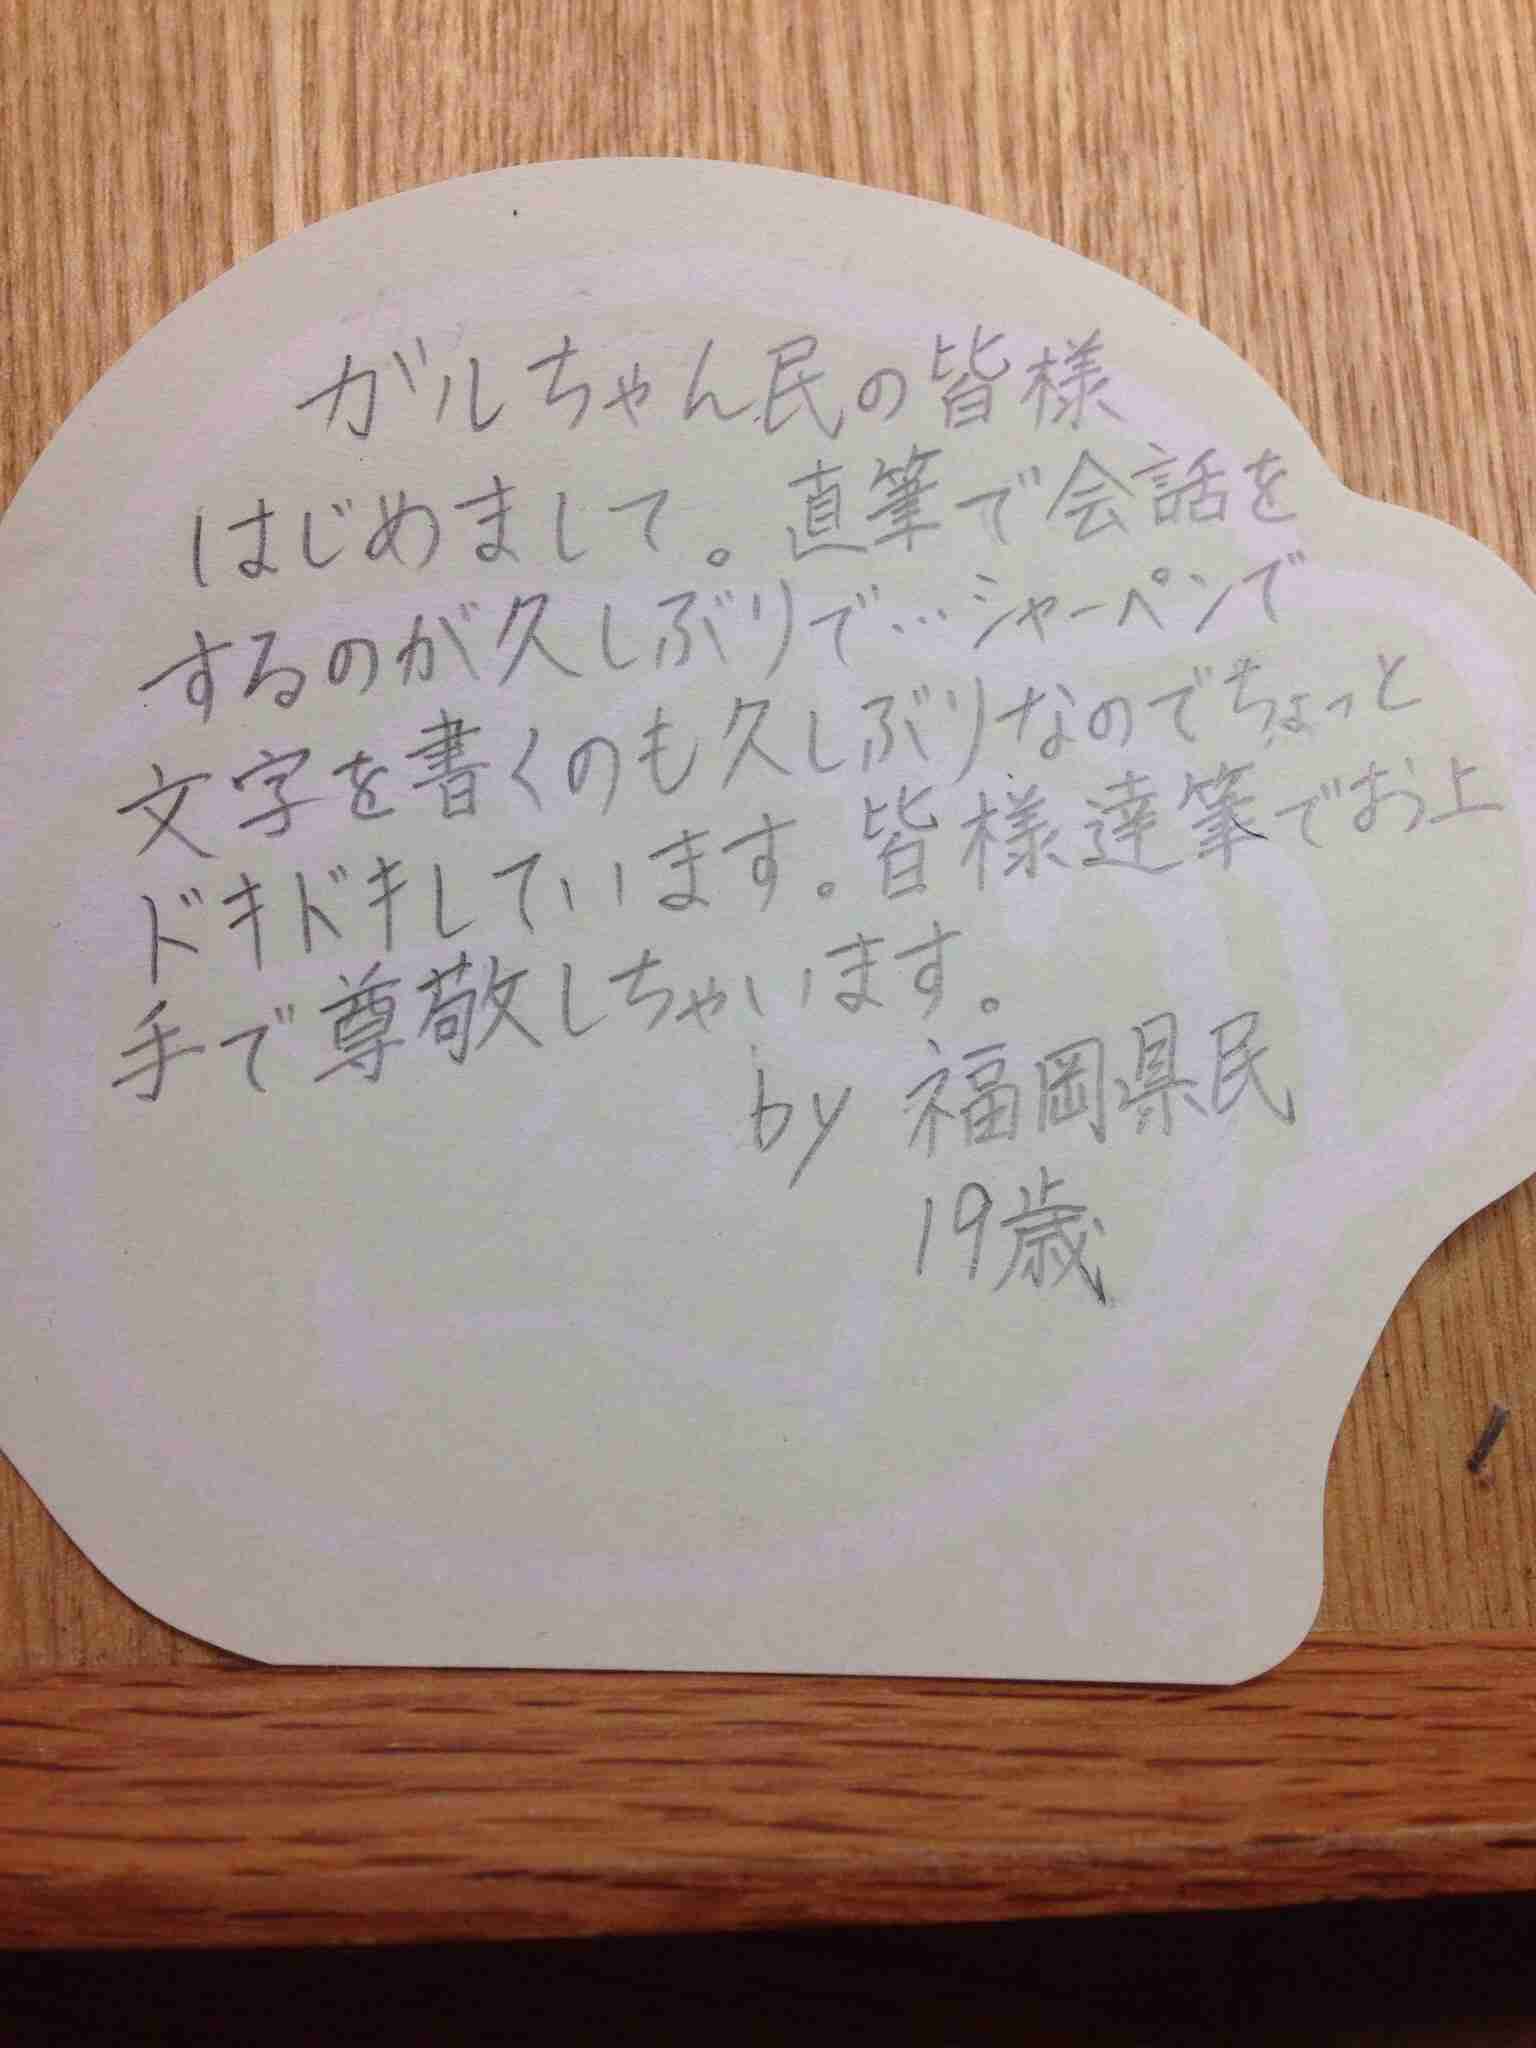 ガルちゃん民の皆様
はじめまして。直筆で会話を
するのが久しぶりで…シャーペンで
文字を書くのも久しぶりなのでちょっと
ドキドキしています。皆様達筆でお上
手で尊敬しちゃいます。
by 福岡県民
19歳